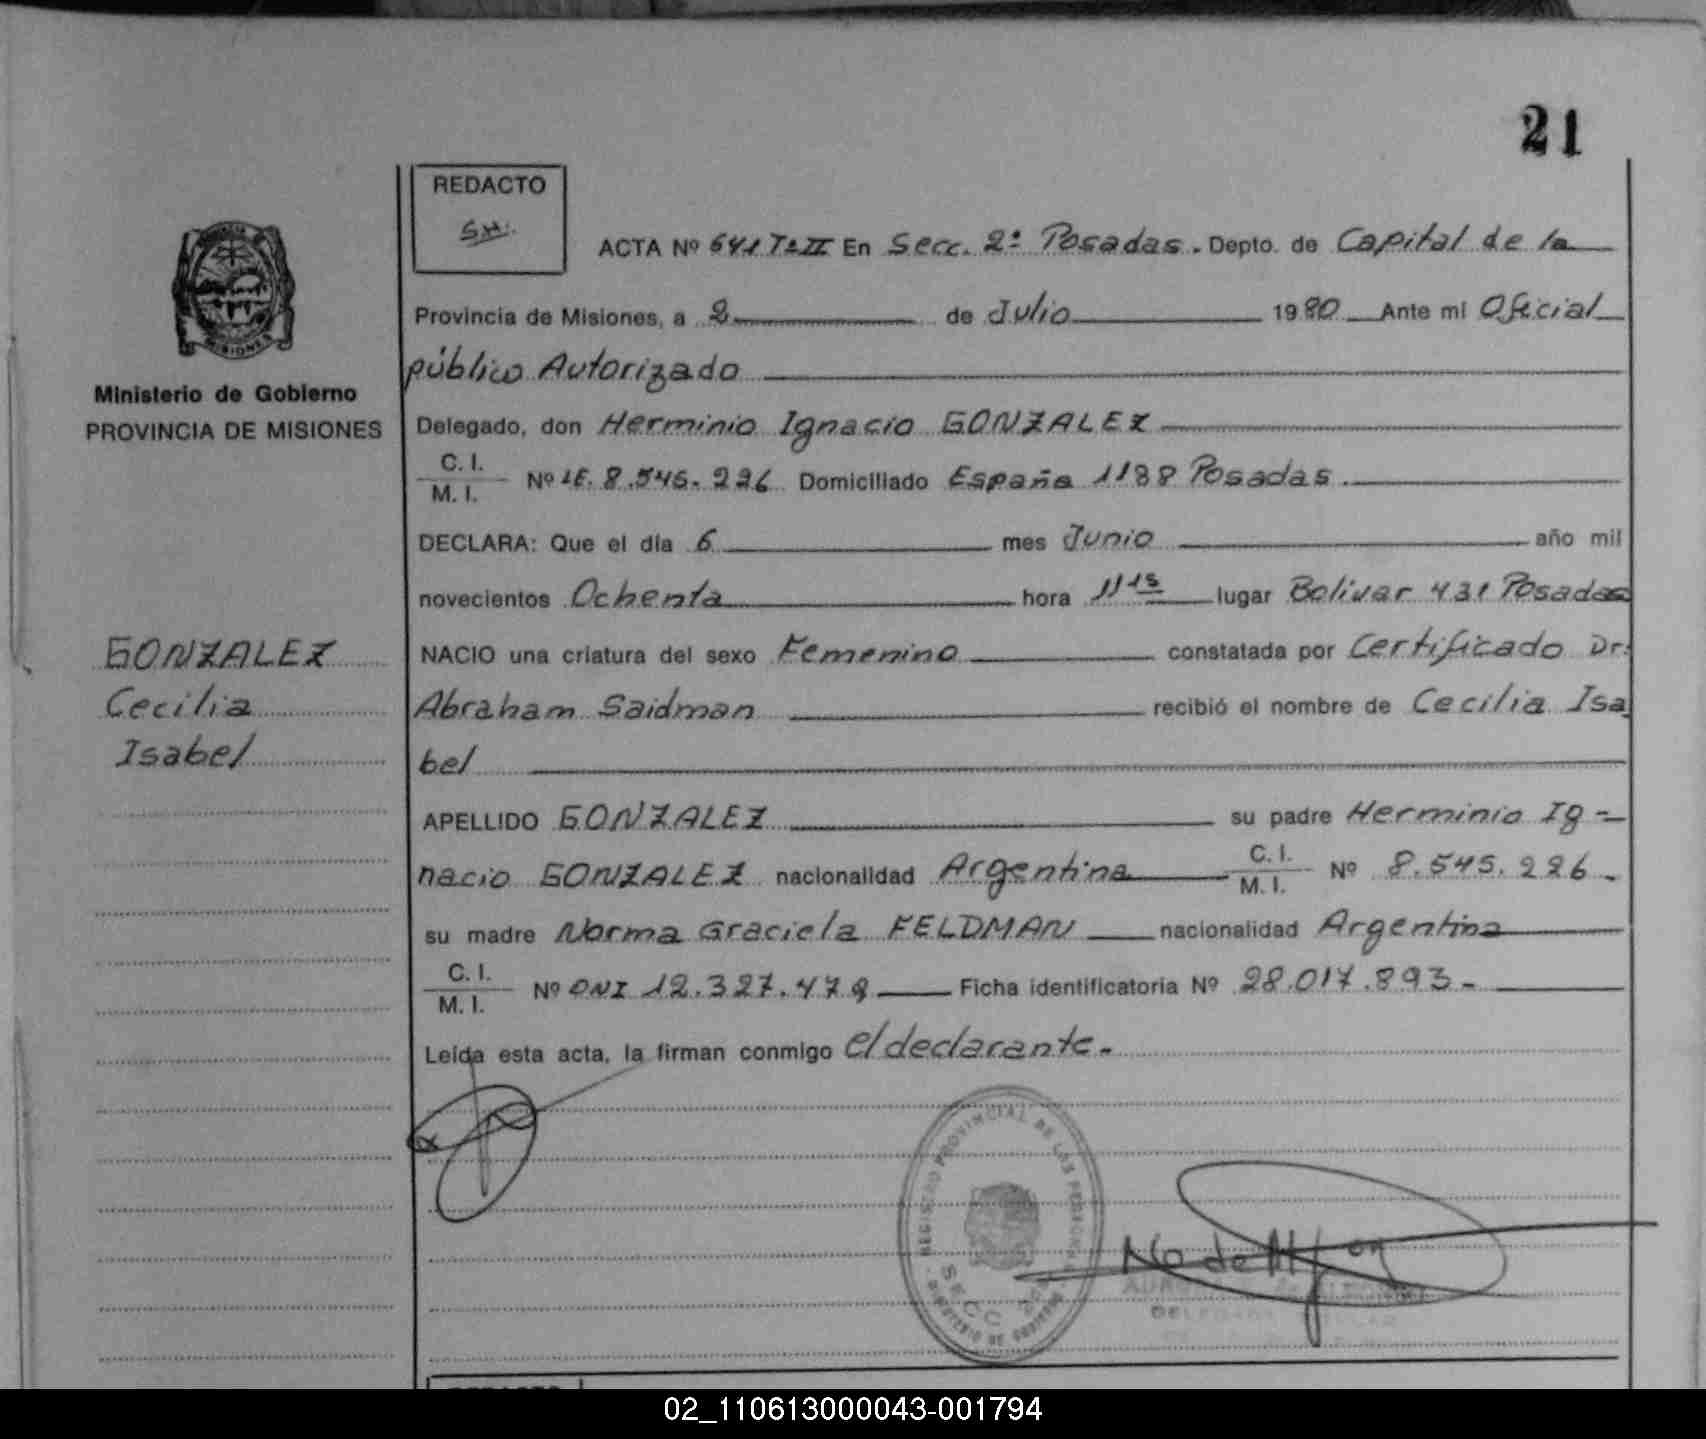 21
REDACTO
ACTA Nº 641 Tº II En Secc. 2ª Posadas. Depto. de Capital de la
Provincia de Misiones, a 2 de Julio 1980 Ante mi Oficial
público Autorizado
Ministerio de Gobierno
PROVINCIA DE MISIONES
Delegado, don Herminio Ignacio GONZALEZ
C. I.
M. I. Nº LE. 8.545.226 Domiciliado España 1188 Posadas.
DECLARA: Que el día 6 mes Junio año mil
novecientos Ochenta hora 11 15 lugar Bolivar 431 Posadas
NACIO una criatura del sexo Femenino constatada por Certificado Dr.
Abraham Saidman recibió el nombre de Cecilia Isa
bel
GONZALEZ
Cecilia
Isabel
APELLIDO GONZALEZ su padre Herminio Ig-
nacio GONZALEZ nacionalidad Argentina C. I. M. I. Nº 8.545.226.-
su madre Norma Graciela FELDMAN nacionalidad Argentina
C. I.
M. I. Nº DNI 12.327.479 Ficha identificatoria Nº 28.017.893.-
Leída esta acta, la firman conmigo el declarante.-
REGISTRO PROVINCIAL DE LAS PERSONAS
SECC. 2ª
MINISTERIO DE GOBIERNO
02_110613000043-001794